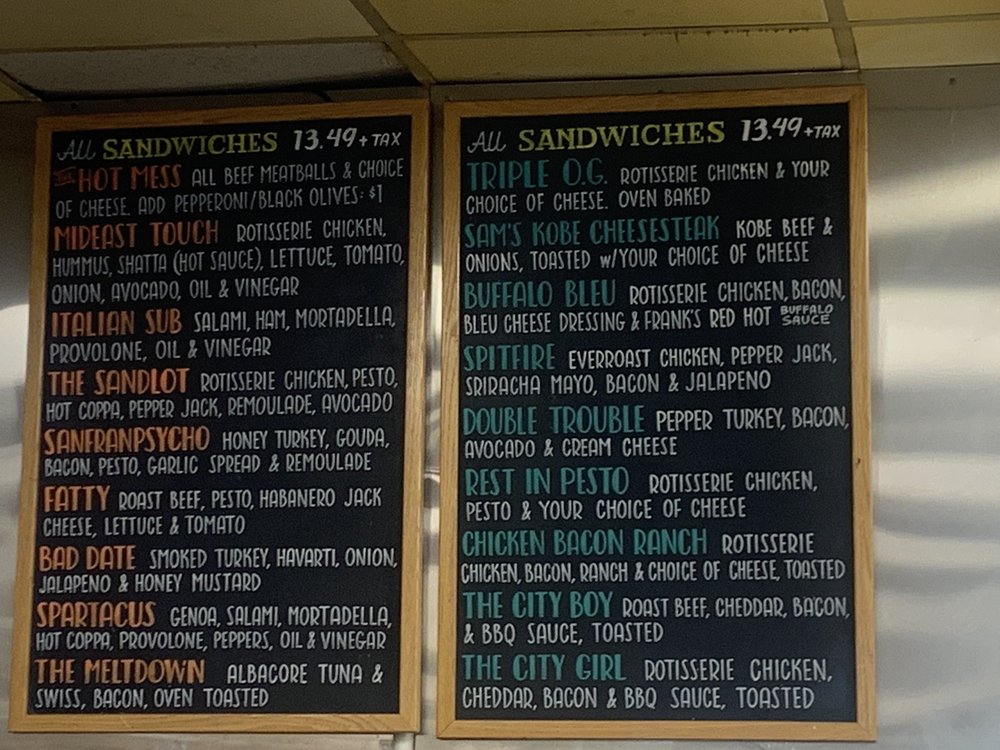 All SANDWICHES 13.49 + TAX
THE HOT MESS ALL BEEF MEATBALLS & CHOICE
OF CHEESE. ADD PEPPERONI/BLACK OLIVES: $1
MIDEAST TOUCH ROTISSERIE CHICKEN,
HUMMUS, SHATTA (HOT SAUCE), LETTUCE, TOMATO,
ONION, AVOCADO, OIL & VINEGAR
ITALIAN SUB SALAMI, HAM, MORTADELLA,
PROVOLONE, OIL & VINEGAR
THE SANDLOT ROTISSERIE CHICKEN, PESTO,
HOT COPPA, PEPPER JACK, REMOULADE, AVOCADO
SANFRANPSYCHO HONEY TURKEY, GOUDA,
BACON, PESTO, GARLIC SPREAD & REMOULADE
FATTY ROAST BEEF, PESTO, HABANERO JACK
CHEESE, LETTUCE & TOMATO
BAD DATE SMOKED TURKEY, HAVARTI, ONION,
JALAPENO & HONEY MUSTARD
SPARTACUS GENOA, SALAMI, MORTADELLA,
HOT COPPA, PROVOLONE, PEPPERS, OIL & VINEGAR
THE MELTDOWN ALBACORE TUNA &
SWISS, BACON, OVEN TOASTED
All SANDWICHES 13.49 + TAX
TRIPLE O.G. ROTISSERIE CHICKEN & YOUR
CHOICE OF CHEESE. OVEN BAKED
SAM'S KOBE CHEESESTEAK KOBE BEEF &
ONIONS, TOASTED w/YOUR CHOICE OF CHEESE
BUFFALO BLEU ROTISSERIE CHICKEN, BACON,
BLEU CHEESE DRESSING & FRANK'S RED HOT BUFFALO SAUCE
SPITFIRE EVERROAST CHICKEN, PEPPER JACK,
SRIRACHA MAYO, BACON & JALAPENO
DOUBLE TROUBLE PEPPER TURKEY, BACON,
AVOCADO & CREAM CHEESE
REST IN PESTO ROTISSERIE CHICKEN,
PESTO & YOUR CHOICE OF CHEESE
CHICKEN BACON RANCH ROTISSERIE
CHICKEN, BACON, RANCH & CHOICE OF CHEESE, TOASTED
THE CITY BOY ROAST BEEF, CHEDDAR, BACON,
& BBQ SAUCE, TOASTED
THE CITY GIRL ROTISSERIE CHICKEN,
CHEDDAR, BACON & BBQ SAUCE, TOASTED